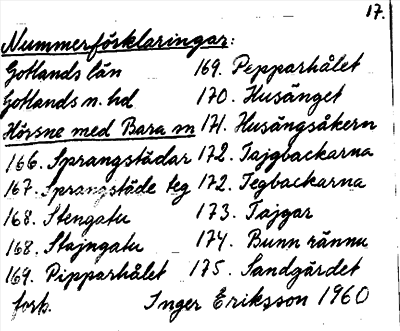 17.
Nummerförklaringar:
Gotlands län
Gotlands n. hd
Hörsne med Bara sn
166. Sprangstädar
167. Sprangstäde teg
168. Stengatu
168. Stajngatu
169. Pipparhålet
forts.
169. Pepparhålet
170. Husänget
171. Husängsåkern
172. Tajgbackarna
172. Tegbackarna
173. Tajgar
174. Bunn rännu
175. Sandgärdet
Inger Eriksson 1960